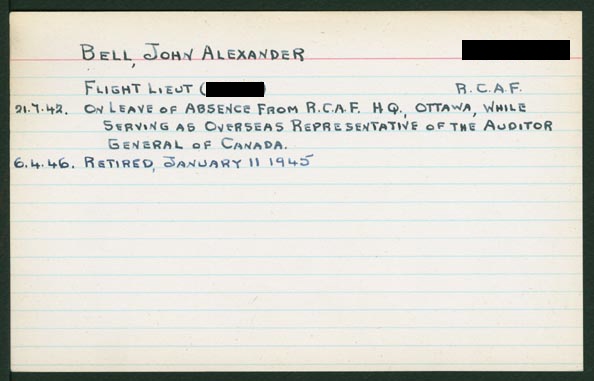 BELL, JOHN ALEXANDER
FLIGHT LIEUT ( ) R.C.A.F.
21.7.42. ON LEAVE OF ABSENCE FROM R.C.A.F. H.Q., OTTAWA, WHILE
SERVING AS OVERSEAS REPRESENTATIVE OF THE AUDITOR
GENERAL OF CANADA.
6.4.46. RETIRED, JANUARY 11 1945